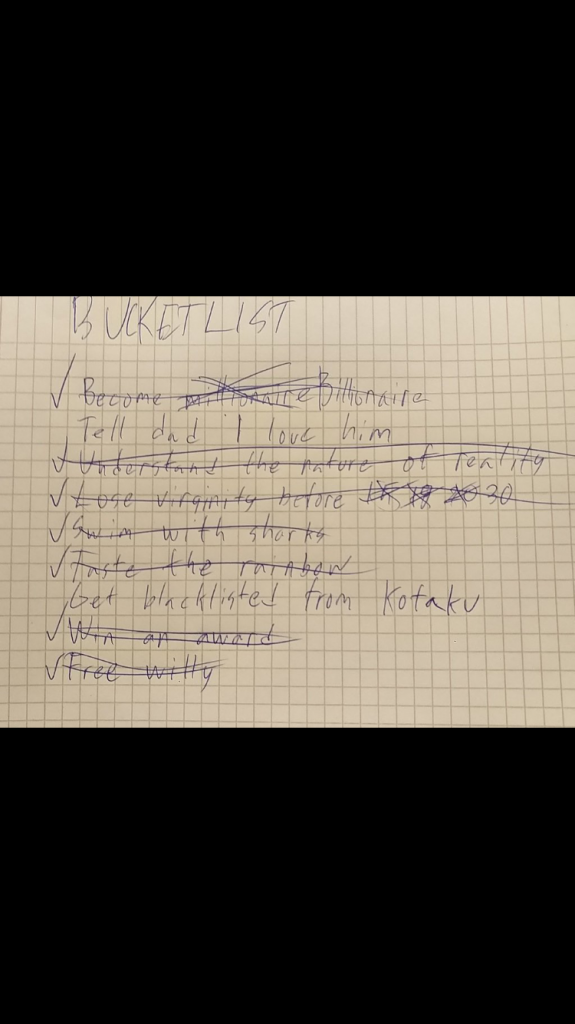 BUCKETLIST
Become millionaire Billionaire
Tell dad I love him
Understand the nature of reality
Lose virginity before 15 18 20 30
Swim with sharks
Taste the rainbow
Get blacklisted from Kotaku
Win an award
Free willy